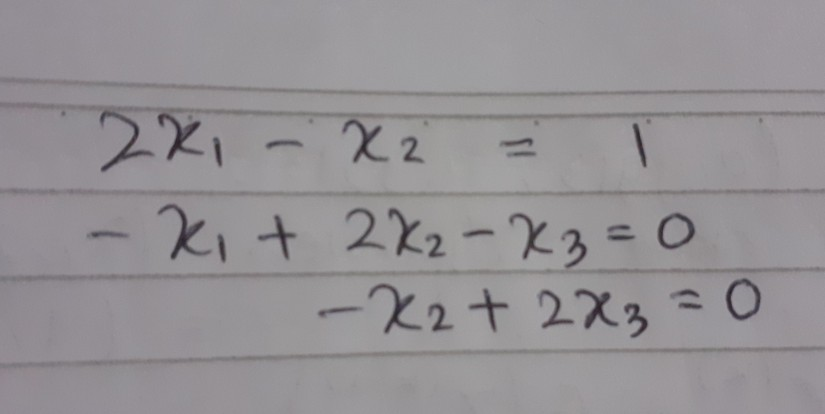 2x₁ - x₂ = 1
- x₁ + 2x₂ - x₃ = 0
-x₂ + 2x₃ = 0